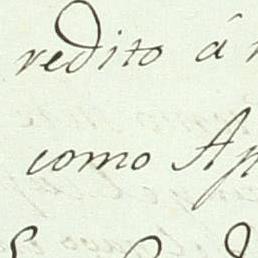 redito á
como Ap